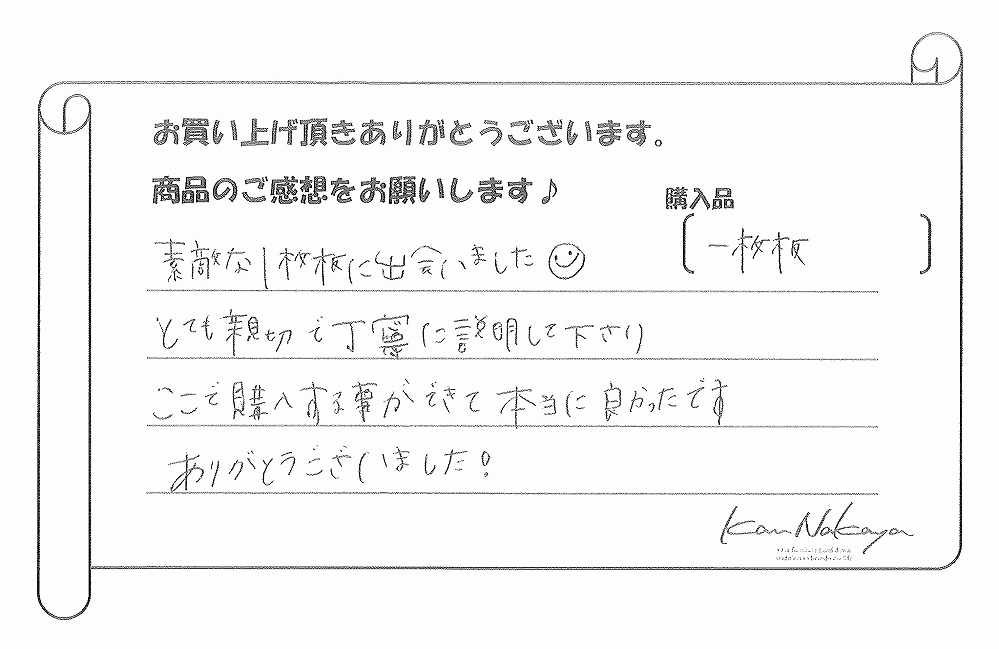 お買い上げ頂きありがとうございます。
商品のご感想をお願いします♪
購入品
一枚板
素敵な1枚板に出会いました☺
とても親切で丁寧に説明して下さり
ここで購入する事ができて本当に良かったです
ありがとうございました!
Kan Nakaya